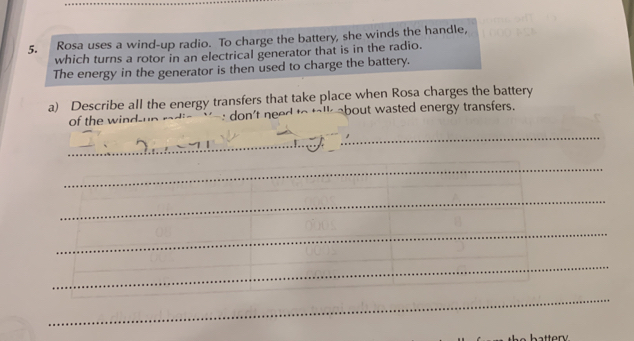 5. Rosa uses a wind-up radio. To charge the battery, she winds the handle,
which turns a rotor in an electrical generator that is in the radio.
The energy in the generator is then used to charge the battery.
a) Describe all the energy transfers that take place when Rosa charges the battery
of the wind-up don't need to talk about wasted energy transfers.
the battery